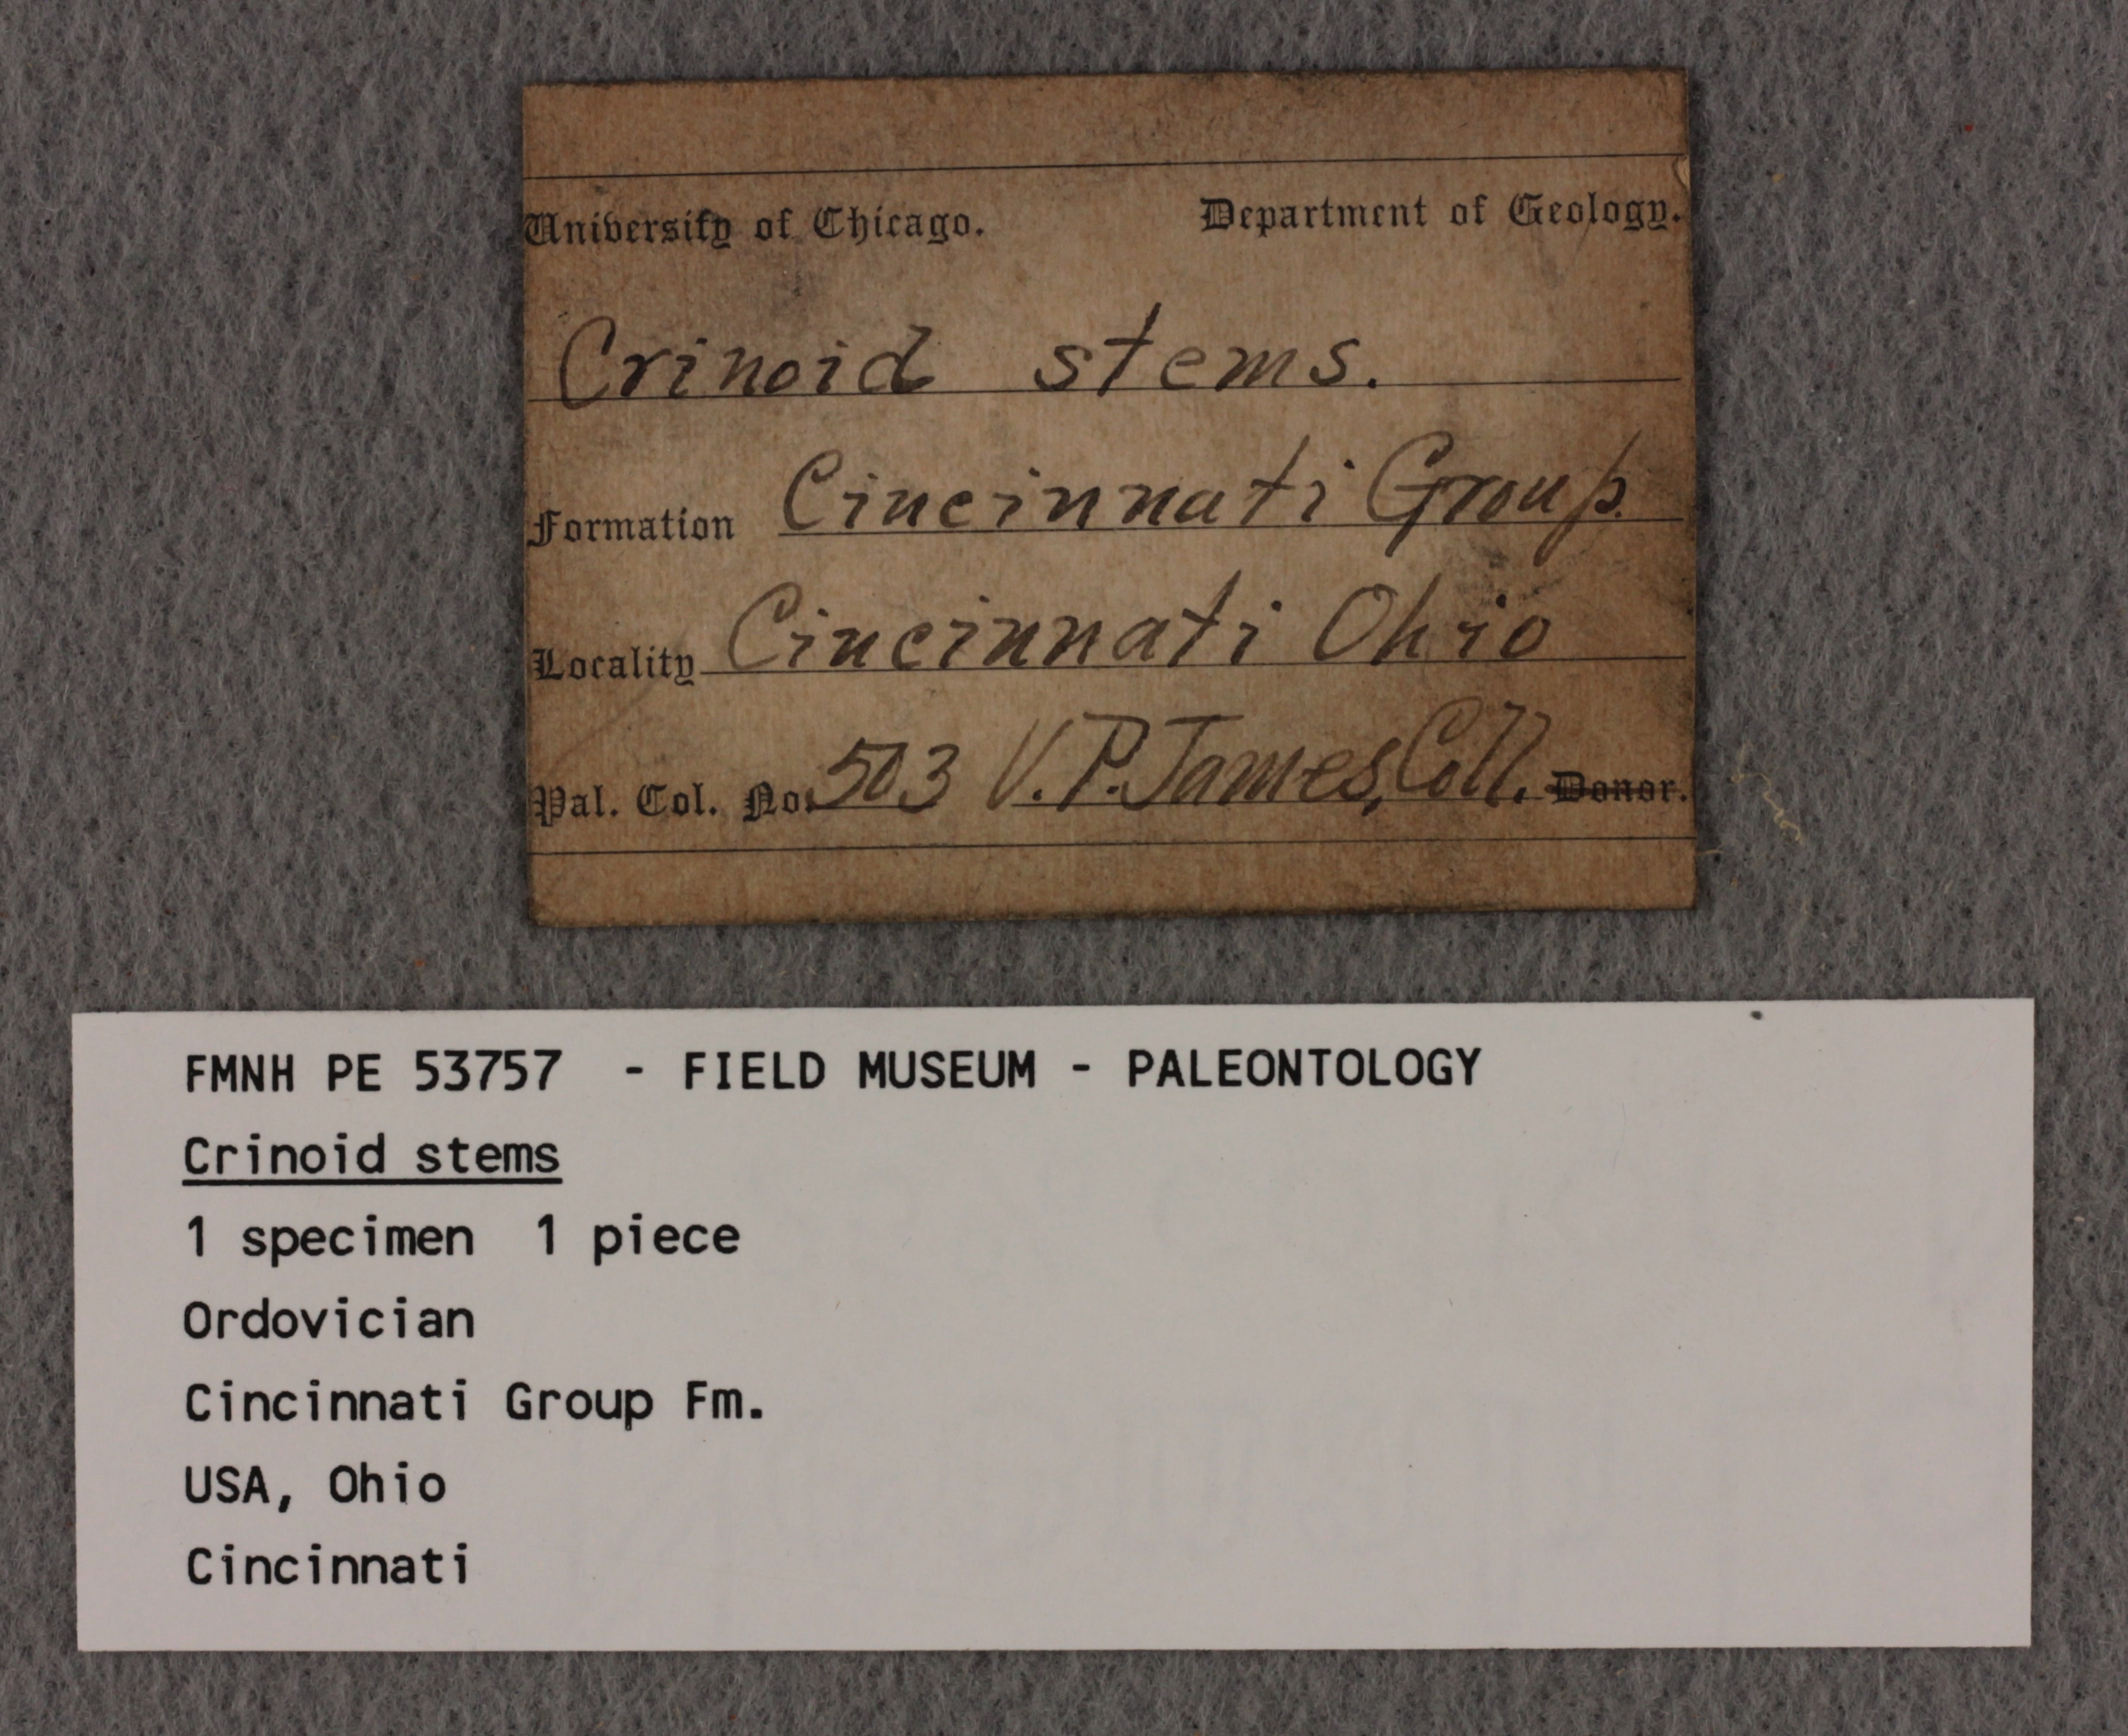 University of Chicago. Department of Geology.
Crinoid stems.
Formation Cincinnati Group.
Locality Cincinnati Ohio
Pal. Col. No. 503 V. P. James, Coll. Donor.
FMNH PE 53757 - FIELD MUSEUM - PALEONTOLOGY
Crinoid stems
1 specimen 1 piece
Ordovician
Cincinnati Group Fm.
USA, Ohio
Cincinnati